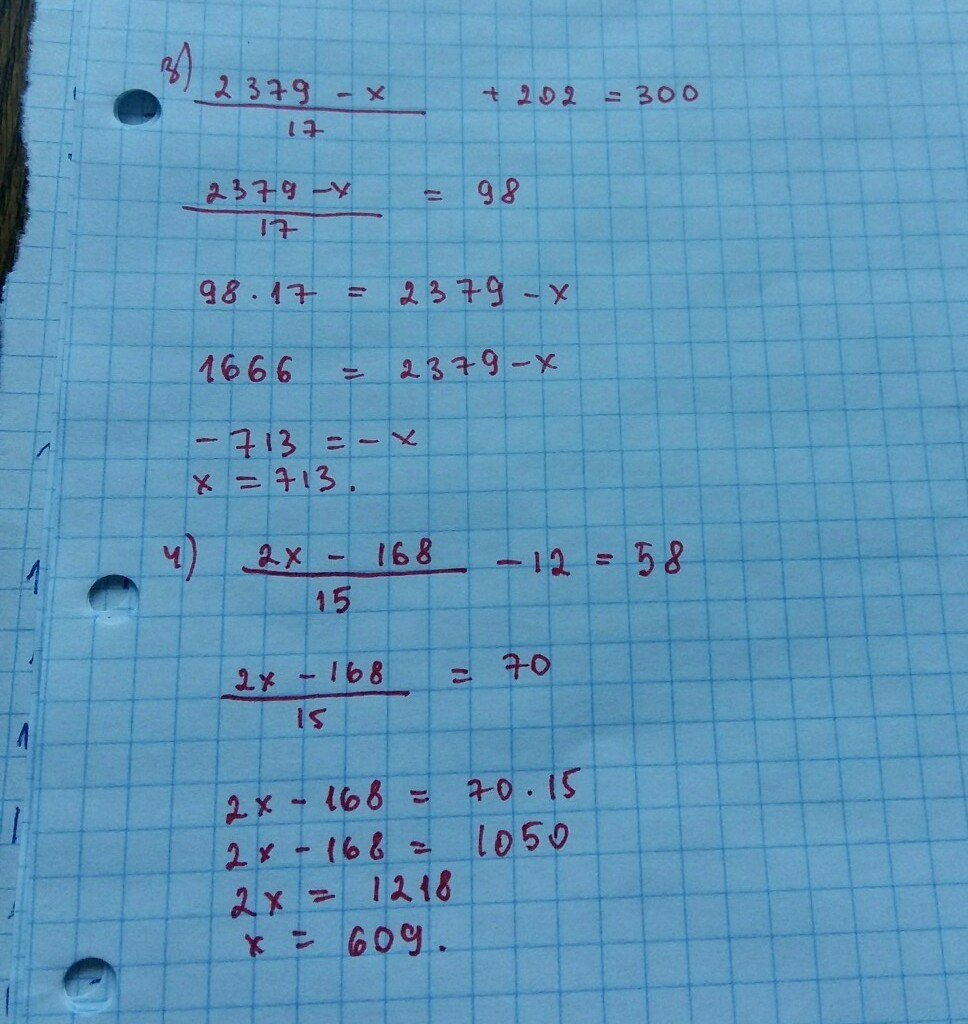 3) (2379 - x)/17 + 202 = 300
(2379 - x)/17 = 98
98 · 17 = 2379 - x
1666 = 2379 - x
- 713 = - x
x = 713.
4) (2x - 168)/15 - 12 = 58
(2x - 168)/15 = 70
2x - 168 = 70 · 15
2x - 168 = 1050
2x = 1218
x = 609.